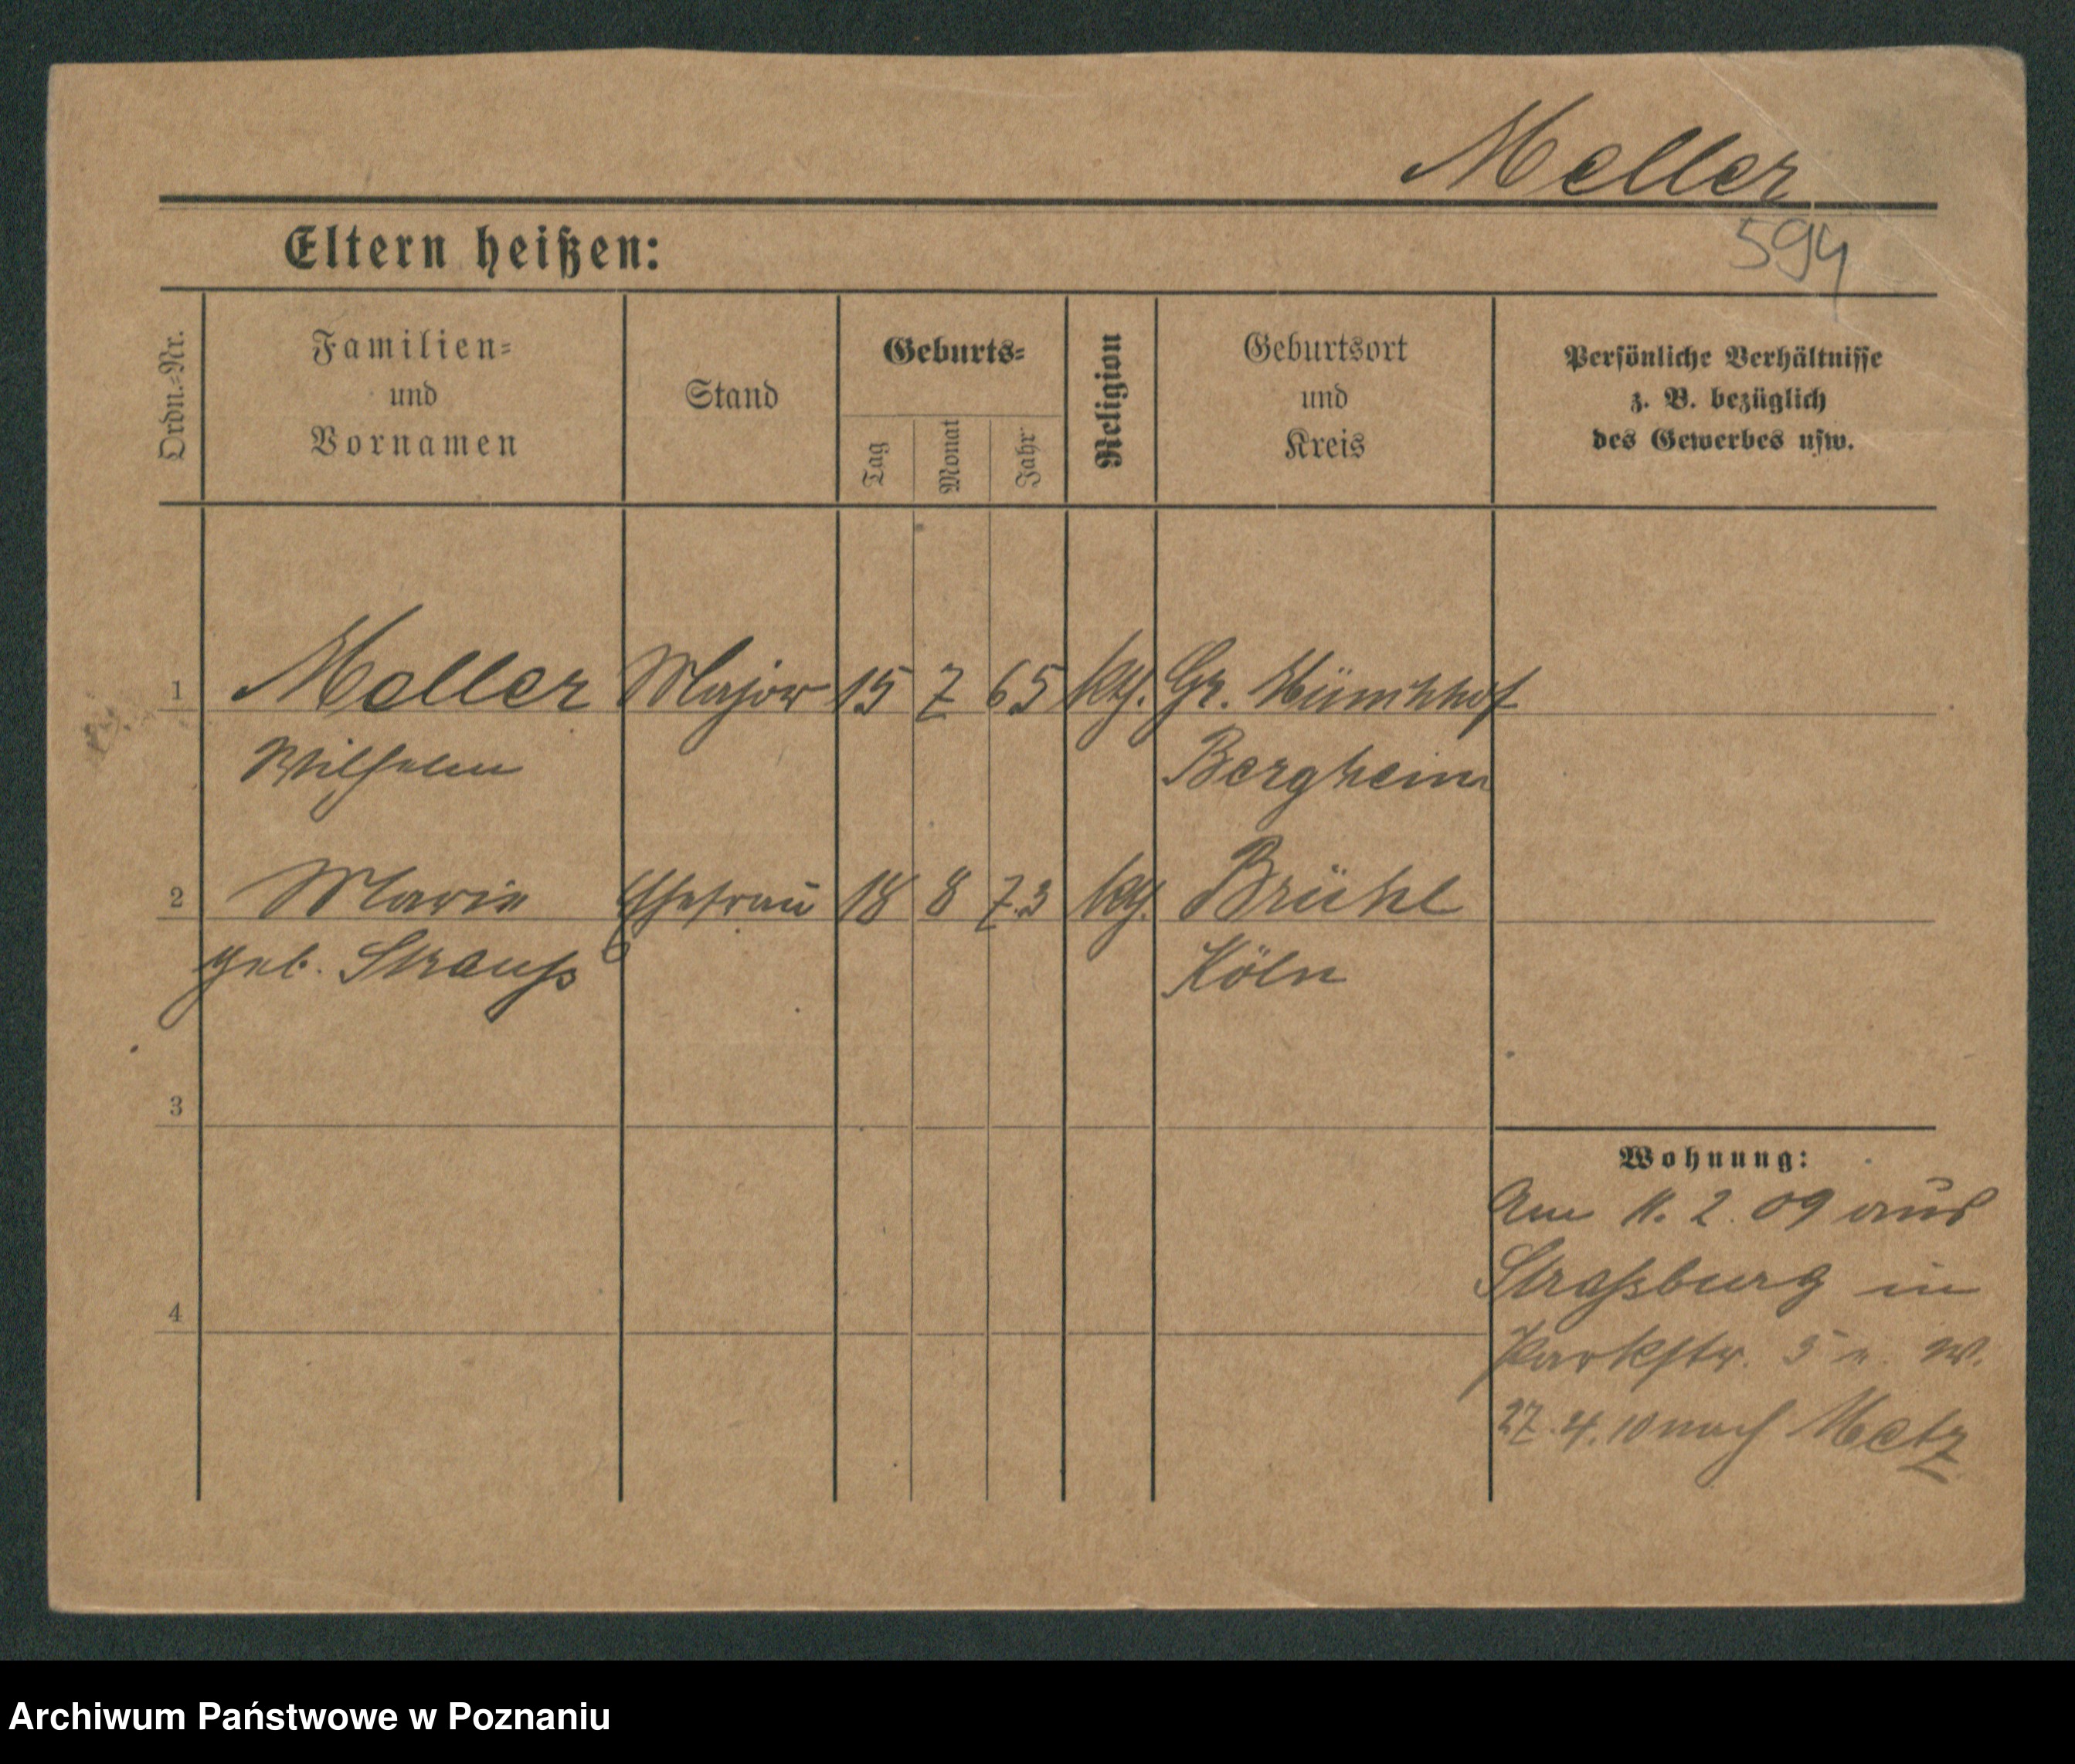 Meller
594
Eltern heißen:
Ordn.-Nr.
Familien-
und
Vornamen
Stand
Geburts-
Tag
Monat
Jahr
Religion
Geburtsort
und
Kreis
Persönliche Verhältnisse
z. B. bezüglich
des Gewerbes usw.
1 Meller Major 15 7 65 kth. Gr. Münchhof
Wilhelm Bergheim
2 Marie Ehefrau 18 8 73 kth. Brühl
geb. Strauß Köln
3
4
Wohnung:
Am 11. 2. 09 aus
Straßburg in
Parkstr. 5 n. W.
27. 4. 10 nach Metz
Archiwum Państwowe w Poznaniu